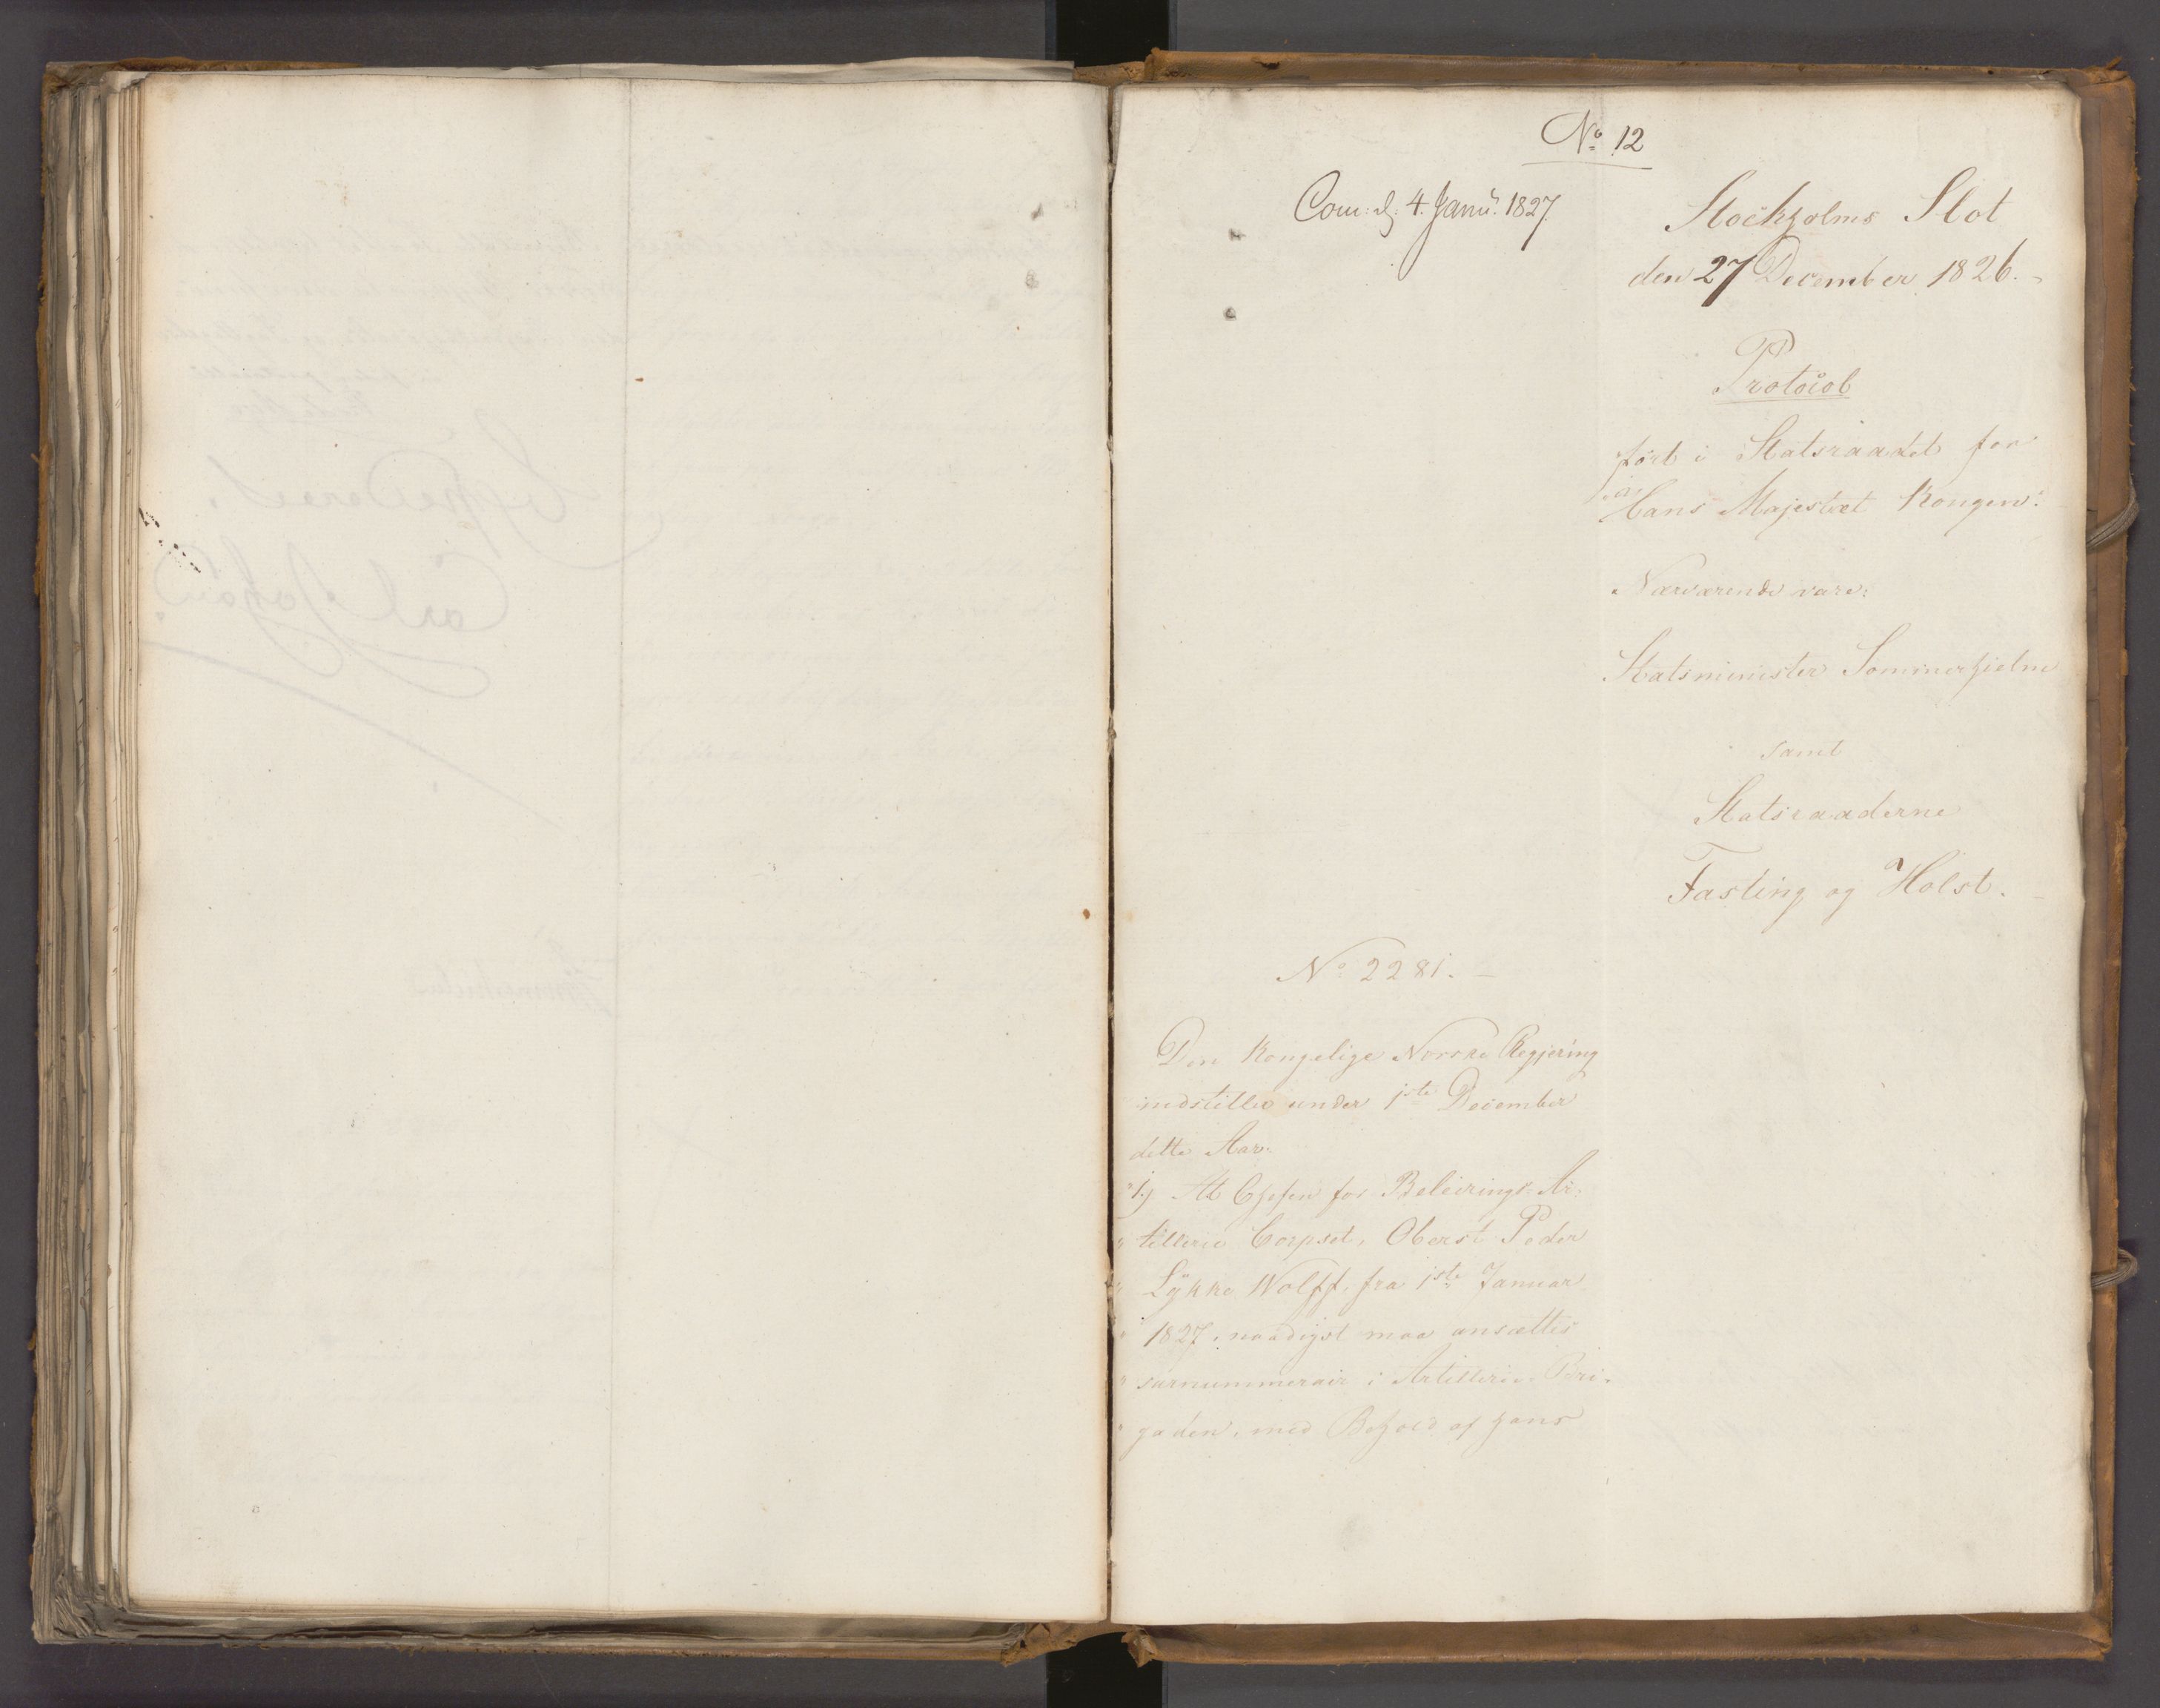 No 12
Com: d: 4. Janu. 1827.
Stockholms Slot
den 27 December 1826.
Protocol
ført i Statsraadet for
Hans Majestæt Kongen.
Nærværende vare:
Statsminister Sommerhielm
samt
Statsraaderne
Fasting og Holst.
No 2281.
Den Kongelige Norske Regjering
indstiller under 1ste December
dette Aar:
"1.) At Chefen for Beleirings-Ar-
" tillerie Corpset, Oberst Peder
" Lykke Wolff, fra 1ste Januar
" 1827, naadigst maa ansættes
" surnummerair i Artillerie-Bri-
" gaden, med Behold af hans